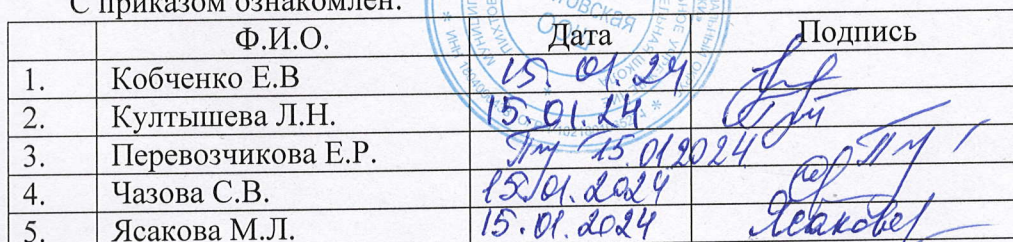 С приказом ознакомлен:
Ф.И.О. Дата Подпись
1. Кобченко Е.В 15.01.24
2. Култышева Л.Н. 15.01.24
3. Перевозчикова Е.Р. 15.012024
4. Чазова С.В. 15.01.2024
5. Ясакова М.Л. 15.01.2024